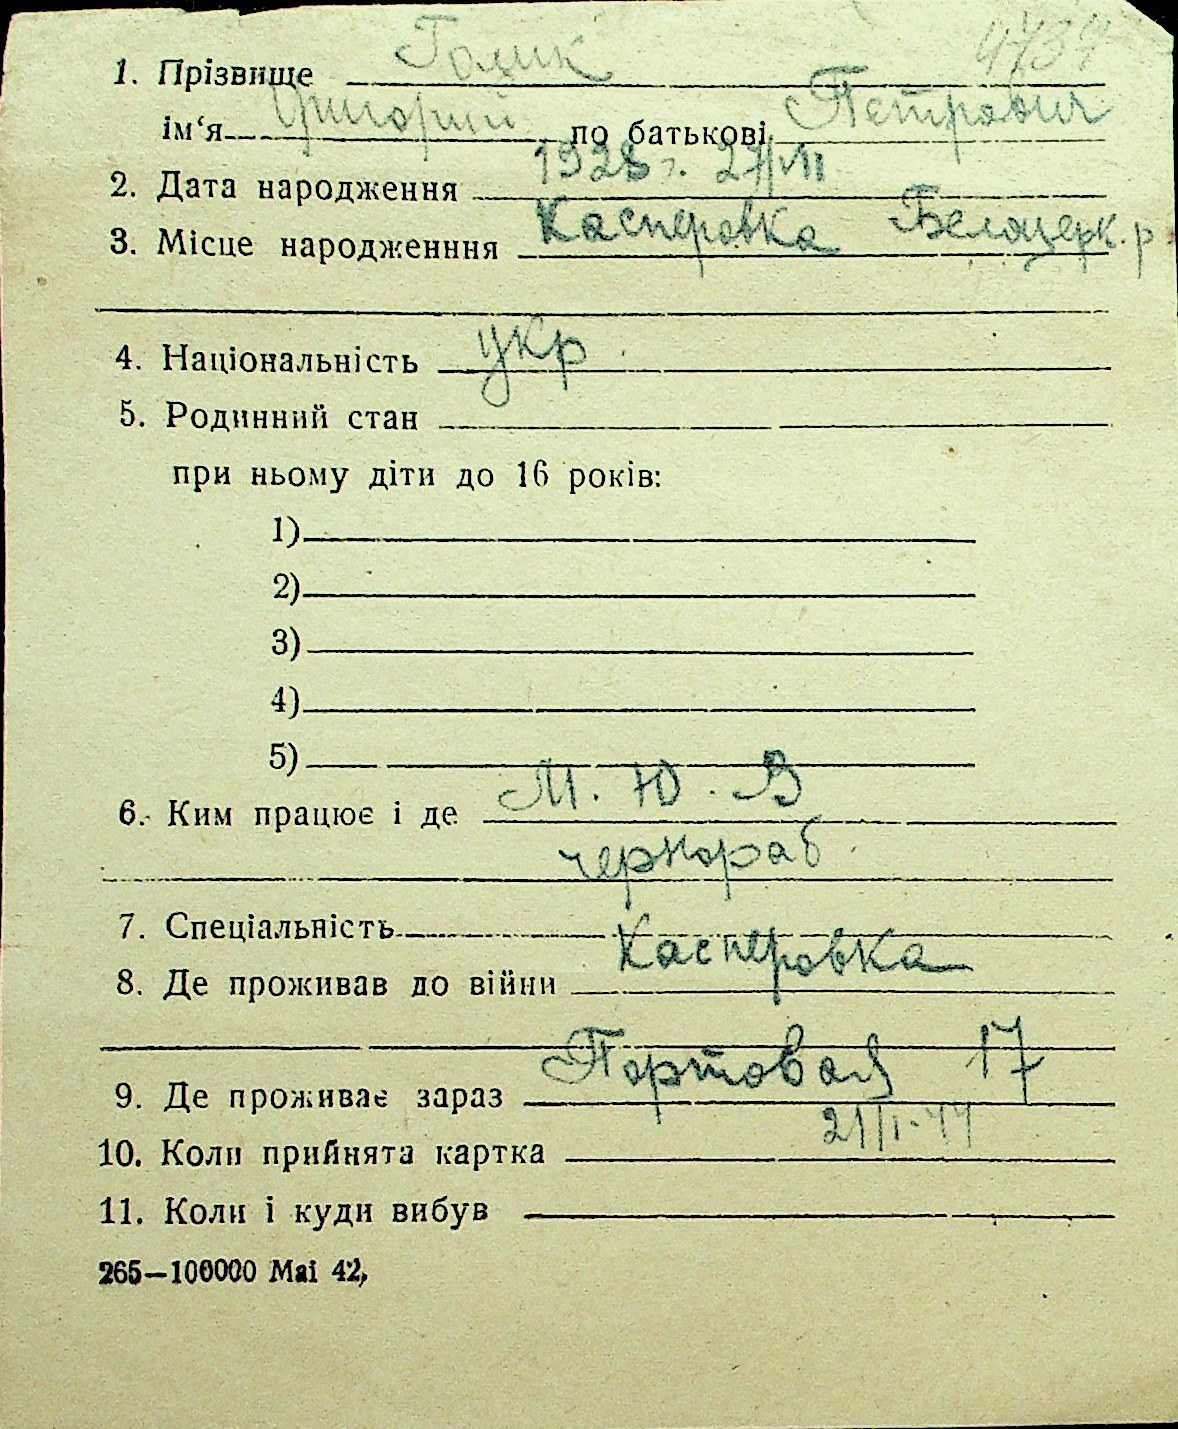 4739
1. Прізвище Голик
ім‘я Григорий по батькові Петрович
2. Дата народження 1928 г. 27/VII
3. Місце народженння Касперовка Белоцерк. р.
4. Національність укр.
5. Родинний стан
при ньому діти до 16 років:
1)
2)
3)
4)
5)
6. Ким працює і де М. Ю. В
чернораб.
7. Спеціальність
8. Де проживав до війни Касперовка
9. Де проживає зараз Портовая 17
10. Коли прийнята картка 21/I-44
11. Коли і куди вибув
265—100000 Mai 42,